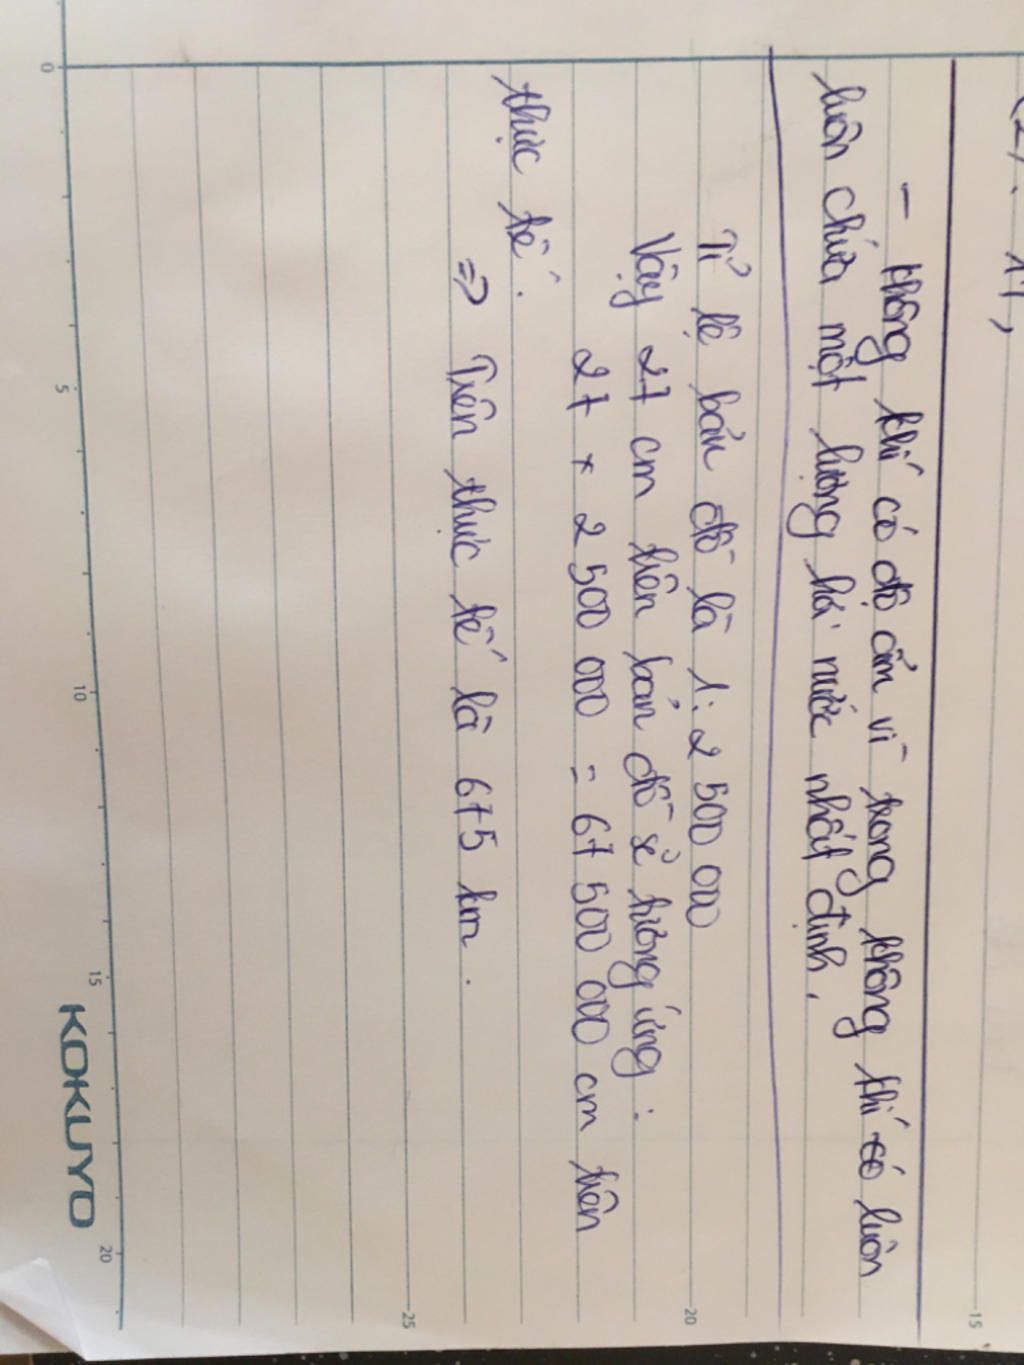 - Không khí có độ ẩm vì trong không khí có luôn
luôn chứa một lượng hơi nước nhất định.
Tỉ lệ bản đồ là 1: 2 500 000
Vậy 27 cm trên bản đồ sẽ tương ứng:
27 x 2 500 000 = 67 500 000 cm trên
thực tế.
=> Trên thực tế là 675 km.
15
20
25
0
5
10
15
20
KOKUYO